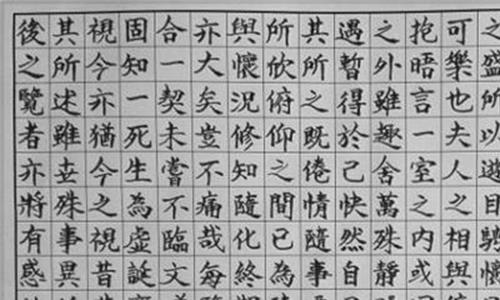 之盛所以遊目騁懷
可樂也夫人之相與
抱晤言一室之內或
之外雖趣舍萬殊靜
遇暫得於己快然自
其所之既倦情隨事
所欣俯仰之間已為
與懷況修短隨化終
亦大矣豈不痛哉每
合一契未嘗不臨文
固知一死生為虛誕
視今亦猶今之視昔
其所述雖世殊事異
後之覽者亦將有感